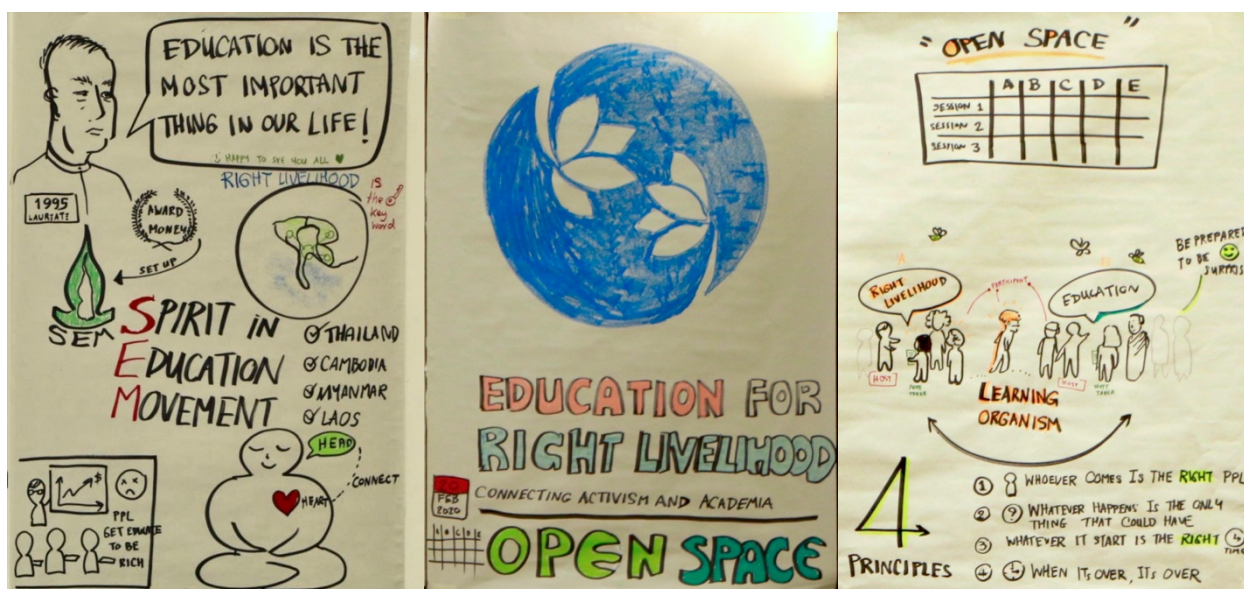 EDUCATION IS THE
MOST IMPORTANT
THING IN OUR LIFE!
HAPPY TO SEE YOU ALL
RIGHT LIVELIHOOD
IS
the
key
word
1995
LAUREATE
AWARD
MONEY
SET UP
SEM
SPIRIT IN
EDUCATION
MOVEMENT
THAILAND
CAMBODIA
MYANMAR
LAOS
HEAD
HEART
CONNECT
$
PPL
GET EDUCATE
TO BE
RICH
EDUCATION FOR
RIGHT LIVELIHOOD
20
FEB
2020
CONNECTING ACTIVISM AND ACADEMIA
A B C D E
OPEN SPACE
"OPEN SPACE"
A B C D E
SESSION 1
SESSION 2
SESSION 3
BE PREPARED
TO BE
SURPRIS
A
RIGHT
LIVELIHOOD
PARTICIPANT
EDUCATION
HOST
NOTE
TAKER
HOST
NOTE
TAKER
LEARNING
ORGANISM
4
PRINCIPLES
1 WHOEVER COMES IS THE RIGHT PPL
2 ? WHATEVER HAPPENS IS THE ONLY
THING THAT COULD HAVE
3 WHATEVER IT START IS THE RIGHT
TIME
4 WHEN ITS OVER, ITS OVER